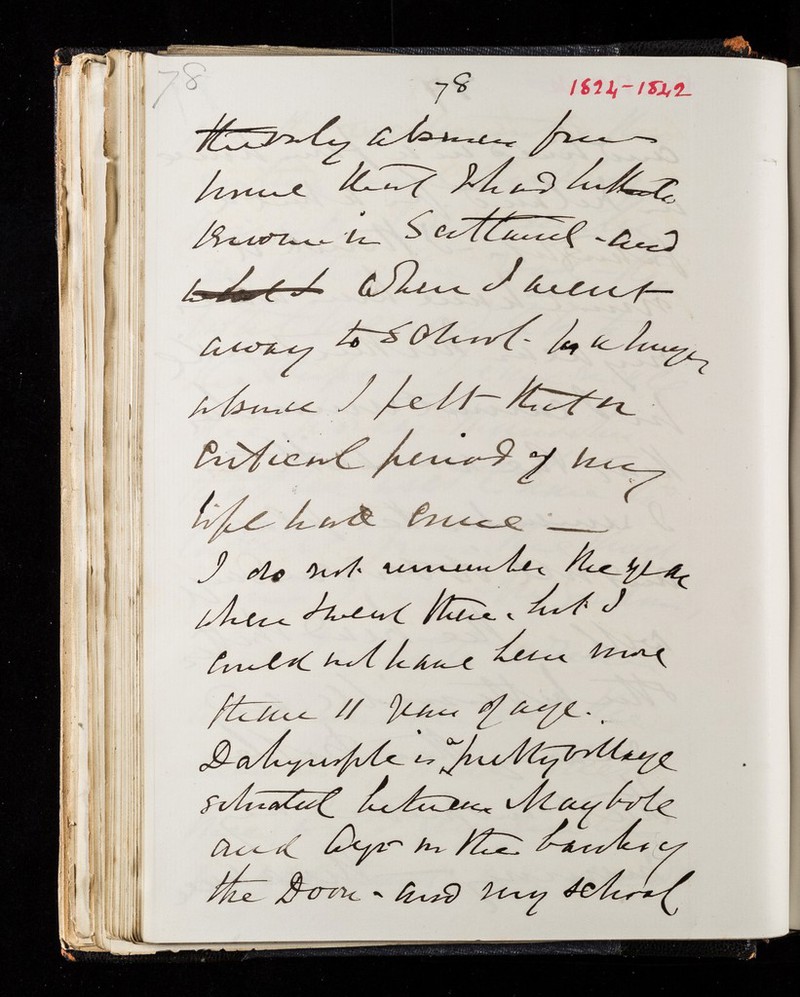 78
78
1824-1842
the only absence from
home that I had hitherto
known in Scotland - and
what I when I went
away to school - for a longer
absence I felt that a
critical period of my
life had come —
I do not remember the year
when I went there, but I
could not have been more
than 11 years of age.
Dalrymple is a pretty village
situated between Maybole
and Ayr on the banks of
the Doon - and my school